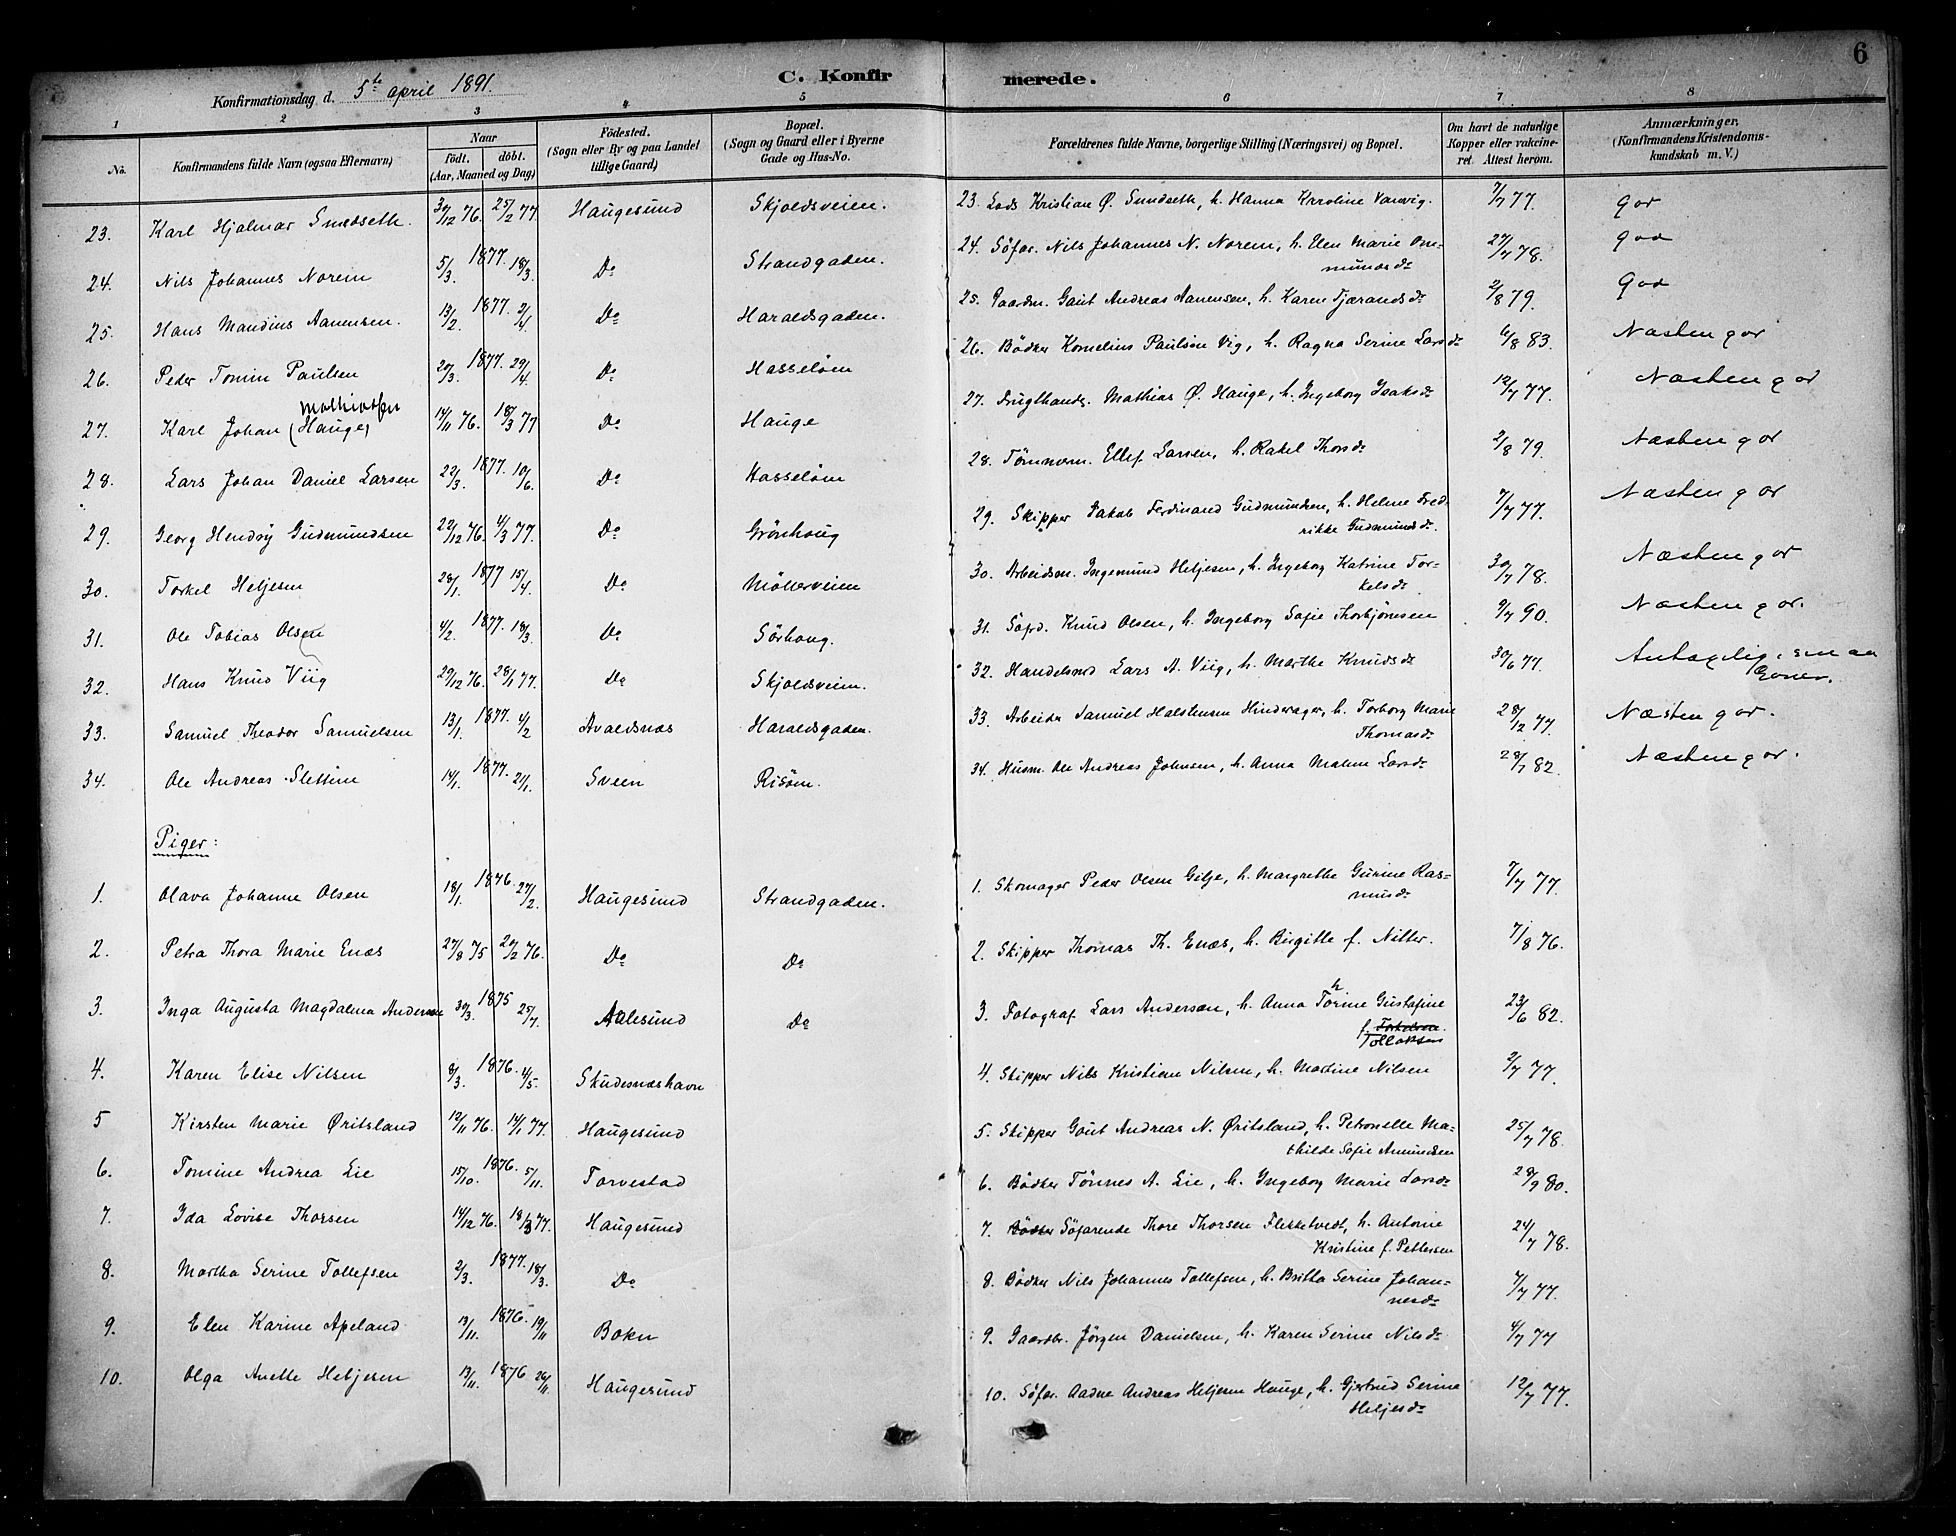 6
C. Konfirmerede.
Konfirmationsdag d. 5te april 1891.
1 2 3 4 5 6 7 8
No. Konfirmandens fulde Navn (ogsaa Efternavn) Naar födt. döbt. (Aar, Maaned og Dag) Födested. (Sogn eller By og paa Landet tillige Gaard) Bopæl. (Sogn og Gaard eller i Byerne Gade og Hus-No. Forældrenes fulde Navne, borgerlige Stilling (Næringsvei) og Bopæl. Om havt de naturlige Kopper eller vakcineret. Attest herom. Anmærkninger. (Konfirmandens Kristendomskundskab m. V.)
23. Karl Hjalmar Smedseth. 30/12 76. 25/2 77. Haugesund Skjoldsveien. 23. Lods Kristian Ø. Smedseth, h. Hanna Karoline Vanvig. 7/7 77. god
24. Nils Johannes Norem 5/3. 1877. 18/3. Do Strandgaden. 24. Söfar. Nils Johannes N. Norem, h. Elen Marie Ommundsdr 27/7 78. god
25. Hans Mandius Aanensen. 13/2. 1877. 2/4. Do Haraldsgaden. 25. Gaardm. Gaut Andreas Aanensen, h. Karen Tjærandsdr 2/8 79. God
26. Peder Tomin Paulsen 20/3. 1877. 29/4. Do Hasseløen 26. Bödker Kornelius Paulsen Vig, h. Ragna Serine Larsdr 6/8 83. Næsten god
27. Karl Johan (Hauge) Mathiassen 14/11 76. 18/3 77 Do Hauge 27. Brugthandl. Mathias Ø. Hauge, h. Ingeborg Isaksdr 12/7 77. Næsten god
28. Lars Johan Daniel Larsen 22/3. 1877. 10/6. Do Hasseløen 28. Tömmerm. Ellef Larsen, h. Rakel Thorsdr 2/8 79. Næsten god
29. Georg Hendry Gudmundsen 22/12 76. 4/3 77. Do Grönhaug 29. Skipper Jakob Ferdinand Gudmundsen, h. Helene Fredrikke Gudmundsdr. 7/7 77. Næsten god
30. Torkel Heljesen 28/1. 1877 15/4. Do Möllerveien 30. Arbeidsm. Ingemund Heljesen, h. Ingeborg Katrine Torkelsdr 30/7 78. Næsten god
31. Ole Tobias Olsen 4/2. 1877. 18/3. Do Sörhaug. 31. Söfd. Knud Olsen, h. Ingeborg Sofie Thorbjönsen 9/7 90. Næsten god.
32. Hans Knud Viig 29/12 76. 28/1 77. Do Skjoldsveien. 32. Handelsmd Lars A. Viig, h. Marthe Knudsdr 30/6 77. Antagelig, smaa Evner.
33. Samuel Theodor Samuelsen 13/1. 1877. 4/2 Avaldsnæs Haraldsgaden. 33. Arbeider Samuel Halstensen Hinderager, h. Torborg Marie Thomasdr 28/12 77. Næsten god.
34. Ole Andreas Sletten 14/1. 1877. 21/1. Sveen Risöen. 34. Husm. Ole Andreas Johnsen, h. Anna Malene Larsdr 28/7 82. Næsten god.
Piger:
1. Olava Johanne Olsen 18/1. 1876. 27/2. Haugesund Strandgaden. 1. Skomager Peder Olsen Gilje, h. Margrethe Gurine Rasmusdr 7/7 77.
2. Petra Thora Marie Enæs 27/8 75 20/2 76. Do Do 2. Skipper Thomas Th. Enæs, h. Birgitte f. Nitter. 7/8 76.
3. Inga Augusta Magdalena Andersen 30/3. 1875 25/7. Aalesund Do 3. Fotograf Lars Andersen, h. Anna Thorine Gustafine f. Torkelsen. Tollaksen 23/6 82.
4. Karen Elise Nilsen 8/3. 1876. 4/5. Skudesnæshavn 4. Skipper Nils Kristian Nilsen, h. Martine Nilsen 2/7 77.
5 Kirsten Marie Øritsland 12/11 76. 14/1 77. Haugesund 5. Skipper Gaut Andreas N. Øritsland, h. Petronelle Mathilde Sofie Amundsen 25/7 78.
6. Tomine Andrea Lie 15/10. 1876. 5/11. Torvestad 6. Bödker Tönnes A. Lie, h. Ingeborg Marie Larsdr 28/9 80.
7. Ida Lovise Thorsen 14/12 76. 18/3 77. Haugesund 7. Bödker Söfarende Thore Thorsen Flekketvedt, h. Antonie Kristine f. Pettersen 24/7 78.
8. Martha Serine Tollefsen 2/3. 1877. 18/3. Do 8. Bödker Nils Johannes Tollefsen, h. Britta Serine Johannesdr 7/7 77.
9. Elen Karine Apeland 13/11. 1876. 19/11 Bokn 9. Gaardbr. Jörgen Danielsen, h. Karen Serine Nilsdr 4/7 77
10. Olga Anette Heljesen 13/11. 1876 26/11. Haugesund 10. Söfar. Aadne Andreas Heljesen Hauge, h. Gjertrud Serine Heljesdr 12/7 77.